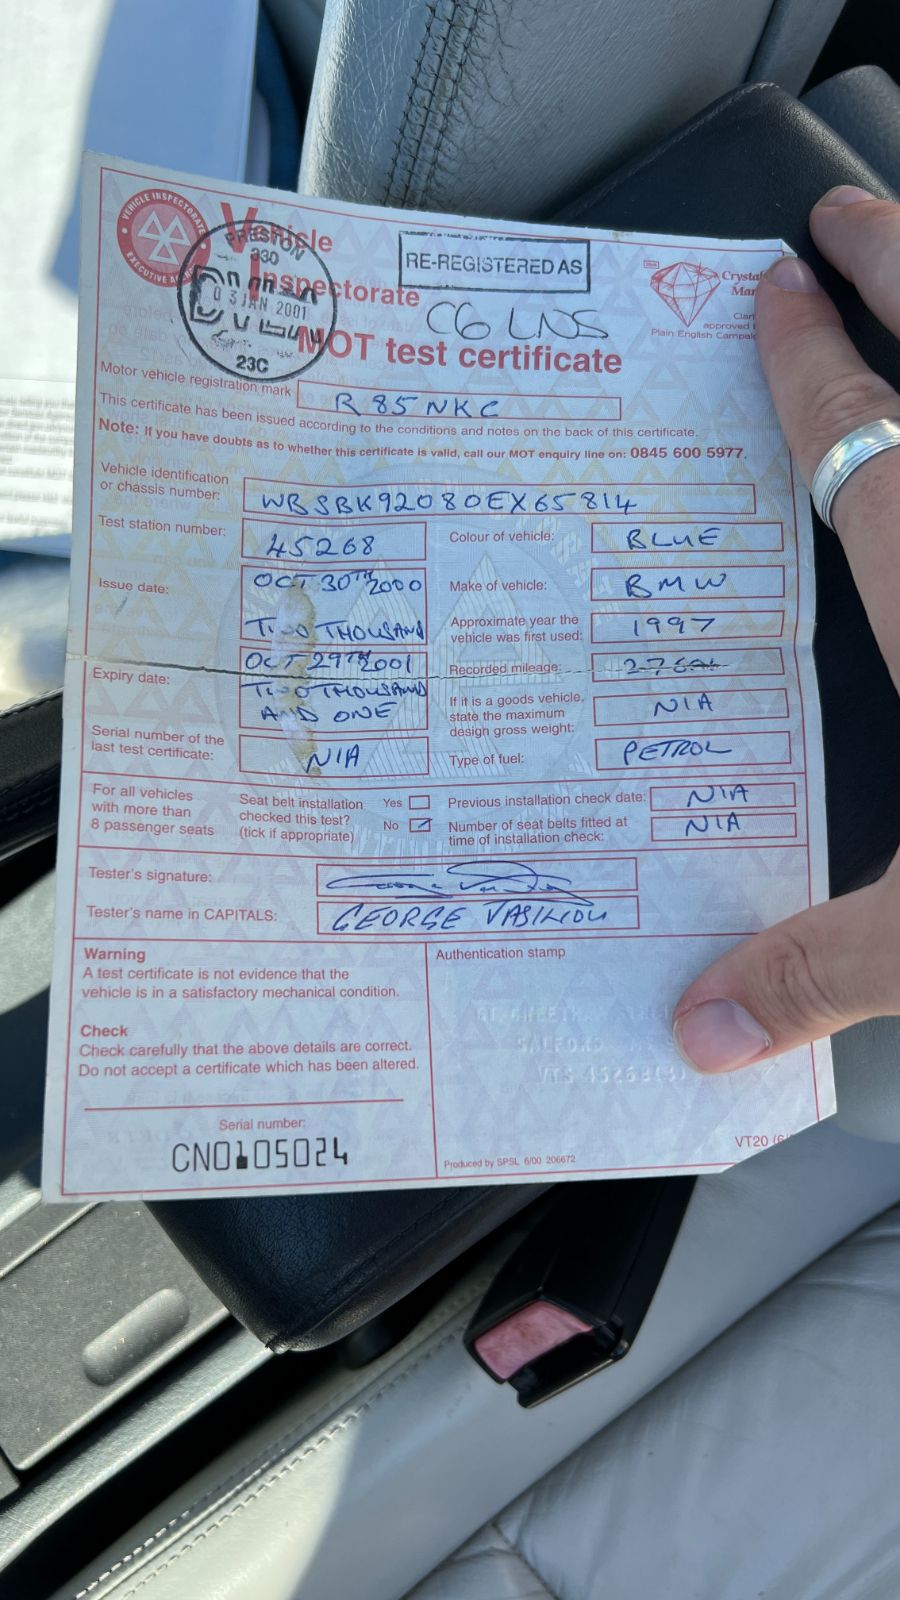 VEHICLE INSPECTORATE
EXECUTIVE
Vehicle
Inspectorate
PRESTON
330
03 JAN 2001
23C
RE-REGISTERED AS
C6 LNS
Crystal
Mark
approved
Plain English
MOT test certificate
Motor vehicle registration mark R85 NKC
This certificate has been issued according to the conditions and notes on the back of this certificate.
Note: If you have doubts as to whether this certificate is valid, call our MOT enquiry line on: 0845 600 5977.
Vehicle identification
or chassis number: WBSBK92080EX65814
Test station number: 45268
Colour of vehicle: BLUE
Issue date: OCT 30TH 2000
TWO THOUSAND
Make of vehicle: BMW
Approximate year the
vehicle was first used: 1997
Expiry date: OCT 29TH 2001
TWO THOUSAND
AND ONE
Recorded mileage:
If it is a goods vehicle,
state the maximum
design gross weight: N/A
Serial number of the
last test certificate: N/A
Type of fuel: PETROL
For all vehicles
with more than
8 passenger seats
Seat belt installation
checked this test?
(tick if appropriate)
Yes
No
Previous installation check date: N/A
Number of seat belts fitted at
time of installation check: N/A
Tester's signature:
Tester's name in CAPITALS: GEORGE VASILIOU
Warning
A test certificate is not evidence that the
vehicle is in a satisfactory mechanical condition.
Check
Check carefully that the above details are correct.
Do not accept a certificate which has been altered.
Serial number:
CN0105024
Authentication stamp
SALFORD
VTS 45268
Produced by SPSL 6/00 206672
VT20